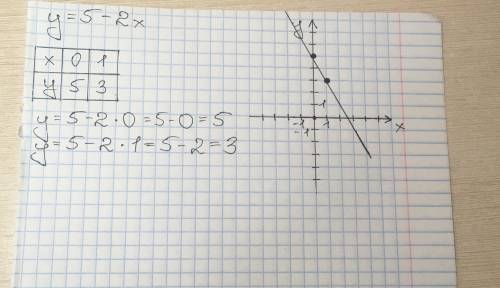 y = 5 - 2x
x 0 1
y 5 3
y = 5 - 2 · 0 = 5 - 0 = 5
y = 5 - 2 · 1 = 5 - 2 = 3
y
1
-1 1
-1
x